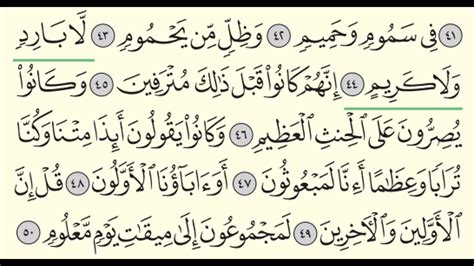 ٤١ فِى سَمُومٍ وَحَمِيمٍ ٤٢ وَظِلٍّ مِّن يَحْمُومٍ ٤٣ لَّا بَارِدٍ
وَلَا كَرِيمٍ ٤٤ إِنَّهُمْ كَانُوا۟ قَبْلَ ذَٰلِكَ مُتْرَفِينَ ٤٥ وَكَانُوا۟
يُصِرُّونَ عَلَى ٱلْحِنثِ ٱلْعَظِيمِ ٤٦ وَكَانُوا۟ يَقُولُونَ أَئِذَا مِتْنَا وَكُنَّا
تُرَابًا وَعِظَٰمًا أَءِنَّا لَمَبْعُوثُونَ ٤٧ أَوَءَابَآؤُنَا ٱلْأَوَّلُونَ ٤٨ قُلْ إِنَّ
ٱلْأَوَّلِينَ وَٱلْءَاخِرِينَ ٤٩ لَمَجْمُوعُونَ إِلَىٰ مِيقَٰتِ يَوْمٍ مَّعْلُومٍ ٥٠